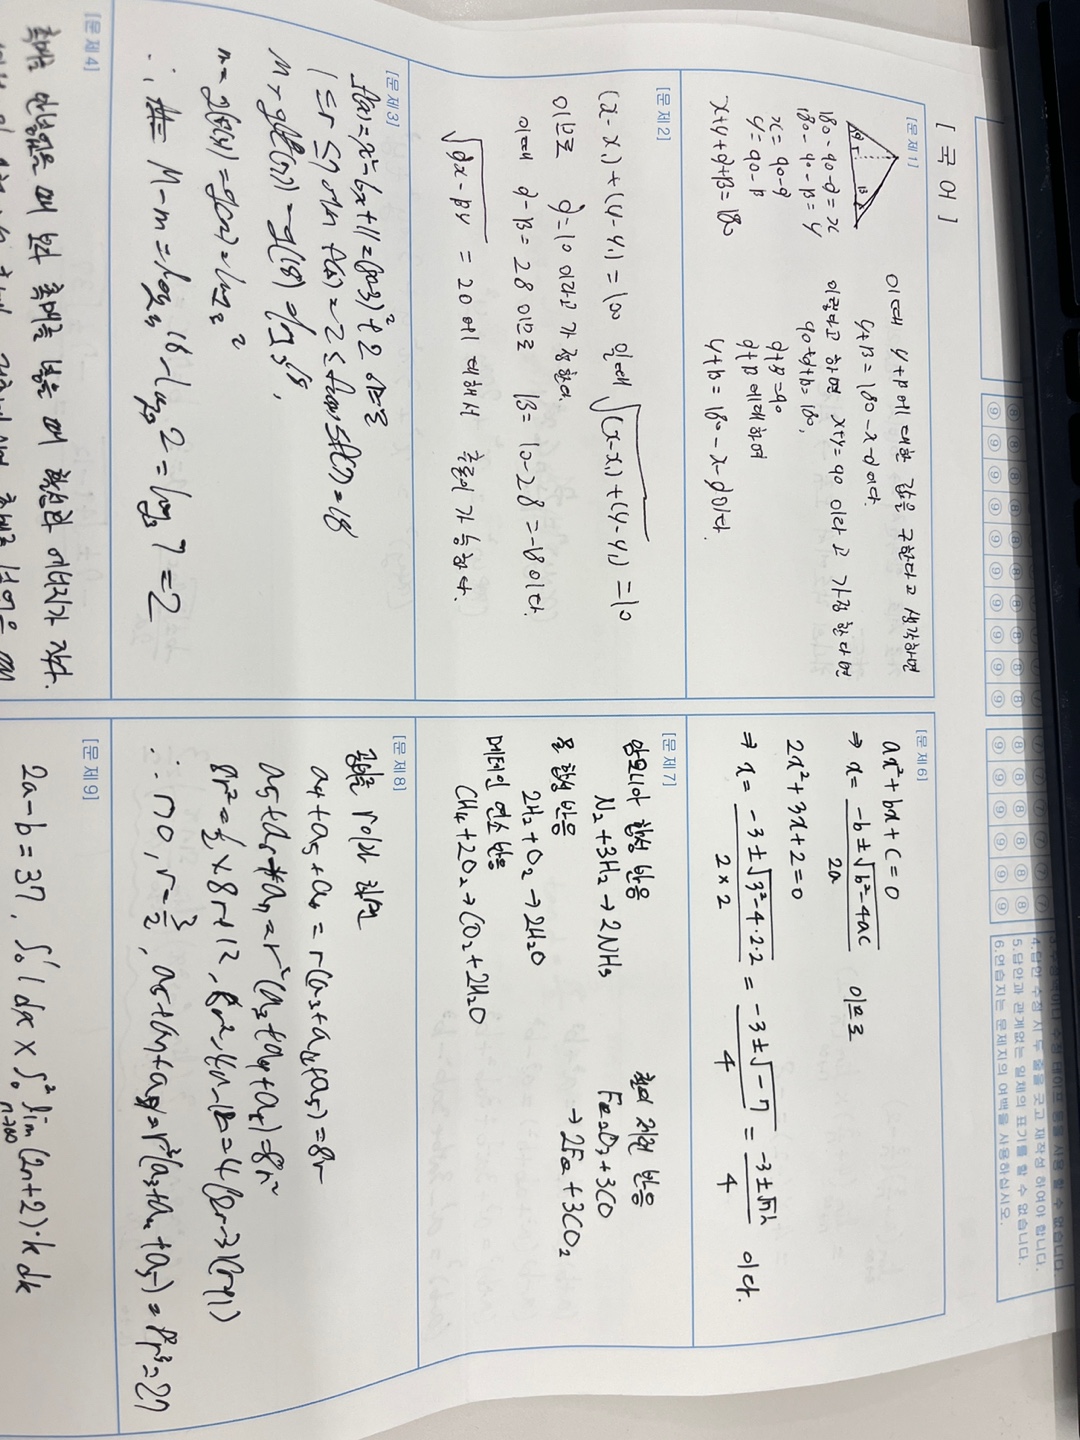 3.수정액이나 수정 테이프 등을 사용 할 수 없습니다.
4.답안 수정 시 두 줄을 긋고 재작성 하여야 합니다.
5.답안과 관계없는 일체의 표기를 할 수 없습니다.
6.연습지는 문제지의 여백을 사용하십시오.
⑦ ⑦ ⑦ ⑦ ⑦ ⑦
⑧ ⑧ ⑧ ⑧ ⑧ ⑧ ⑧ ⑧ ⑧ ⑧ ⑧ ⑧ ⑧ ⑧ ⑧ ⑧
⑨ ⑨ ⑨ ⑨ ⑨ ⑨ ⑨ ⑨ ⑨ ⑨ ⑨ ⑨ ⑨ ⑨ ⑨ ⑨
[ 국 어 ]
[문제1]
α r β
180-90-α=x
180-90-β=y
x=90-α
y=90-β
x+y+α+β=180
이때 y+β에 대한 값을 구한다고 생각하면
y+β=180-x-α이다.
이렇다고 하면 x+y=90 이라고 가정한다면
90+α+β=180,
α+β=90
α+β에 대하여
y+β=180-x-α이다.
[문제2]
(x-x₁)+(y-y₁)=100 일때 √(x-x₁)+(y-y₁) =10
이므로 α=10이라고 가정한다.
이때 α-β=28 이므로 β=10-28=-18이다.
√αx-βy =20에 대해서 추론이 가능하다.
[문제3]
f(x)=x²-6x+11=(x-3)²+2 이므로
1≤x≤7에서 f(3)=2≤f(x)≤f(7)=18
M=g(f(7))=g(18)=log₃18,
m=g(f(3))=g(2)=log₃2
∴ M-m=log₃18-log₃2=log₃7=2
[문제4]
촉매를 안넣었을 때 보다 촉매를 넣을 때 활성화 에너지가 작다.
[문제6]
ax²+bx+c=0
⇒ x= -b±√b²-4ac / 2a 이므로
2x²+3x+2=0
⇒ x= -3±√3²-4·2·2 / 2×2 = -3±√-7 / 4 = -3±√7i / 4 이다.
[문제7]
암모니아 합성 반응
N₂+3H₂→2NH₃
물 합성 반응
2H₂+O₂→2H₂O
메테인 연소 반응
CH₄+2O₂→CO₂+2H₂O
철의 제련 반응
Fe₂O₃+3CO
→2Fe+3CO₂
[문제8]
공비를 r이라 하면
a₄+a₅+a₆=r(a₃+a₄+a₅)=8r
a₅+a₆+a₇=r²(a₃+a₄+a₅)=8r²
8r²=½×8r+12, 8r²-4r-12=4(2r-3)(r+1)
∴ r>0, r=3/2, a₆+a₇+a₈=r³(a₃+a₄+a₅)=8r³=27
[문제9]
2a-b=37, ∫₀¹ 1 dx × ∫₀² lim n→∞ (2n+2)·k dk